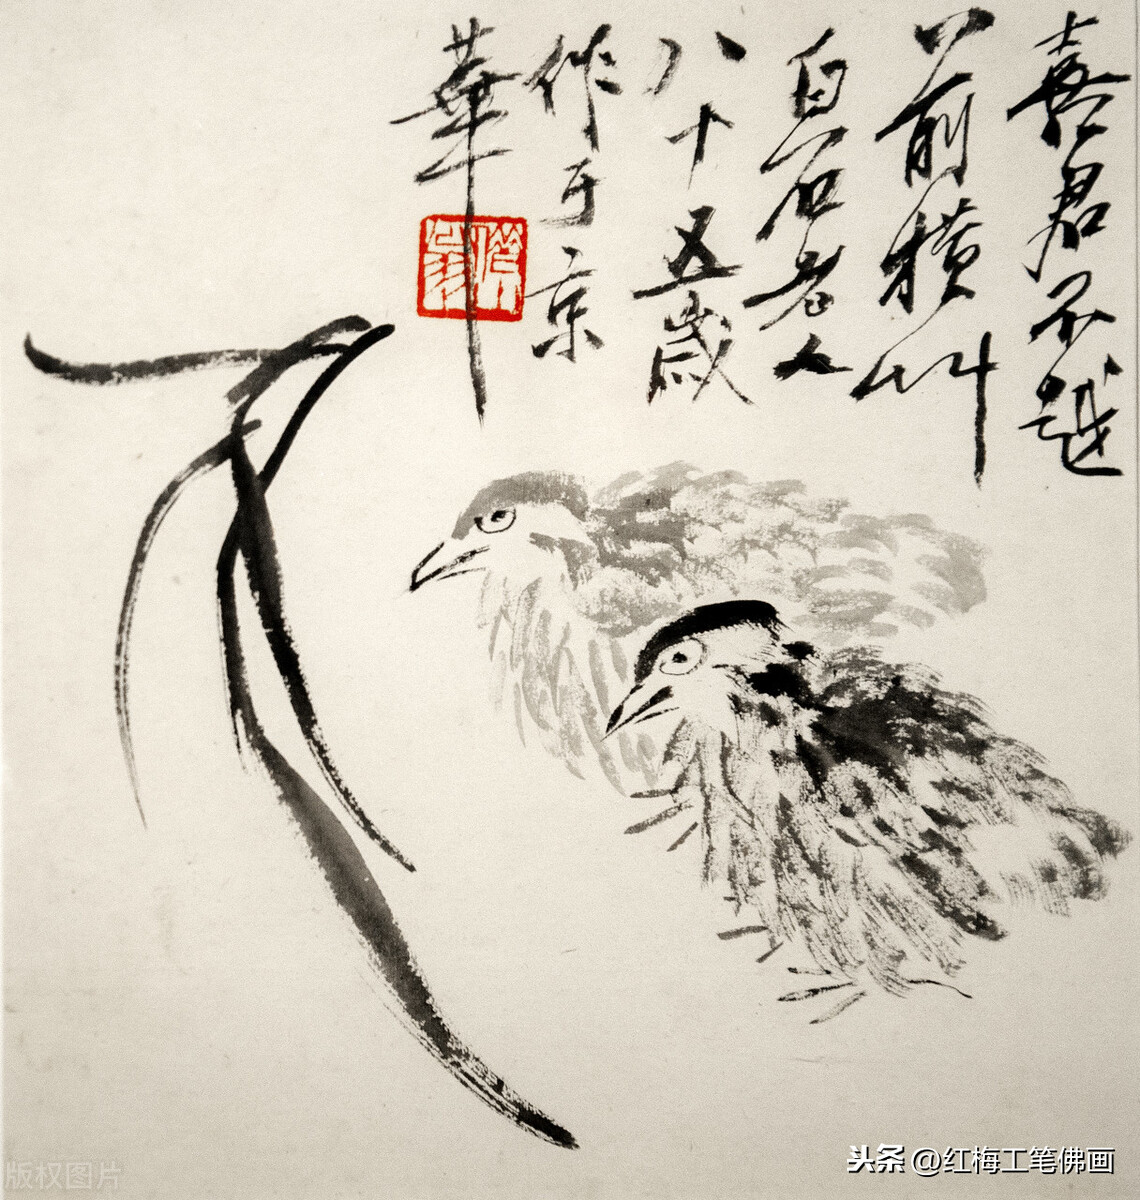 喜君不越
前横艸
白石老人
八十五歲
作于京
華
版权图片
头条 @红梅工笔佛画